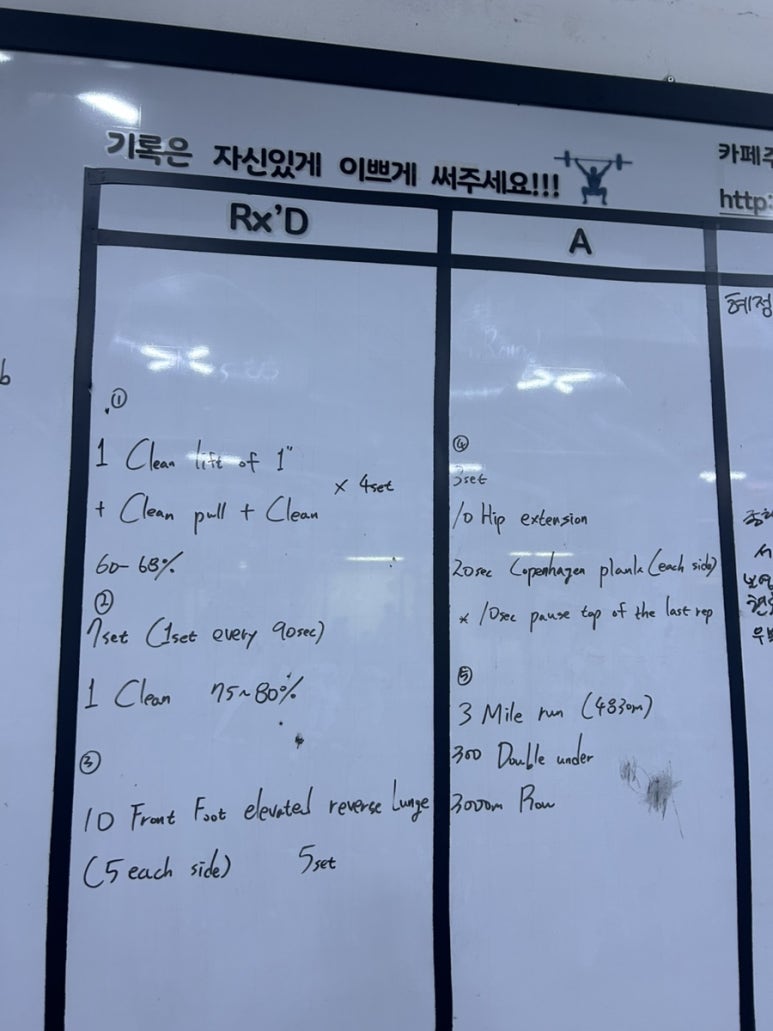 기록은 자신있게 이쁘게 써주세요!!!
카페주
http:
Rx'D
①
1 Clean lift of 1"
+ Clean pull + Clean
× 4set
60-68%
②
7set (1set every 90sec)
1 Clean 75~80%
③
10 Front Foot elevated reverse Lunge
(5 each side) 5set
A
④
3set
10 Hip extension
20sec Copenhagen plank (each side)
* 10sec pause top of the last rep
⑤
3 Mile run (4830m)
300 Double under
3000m Row
혜정